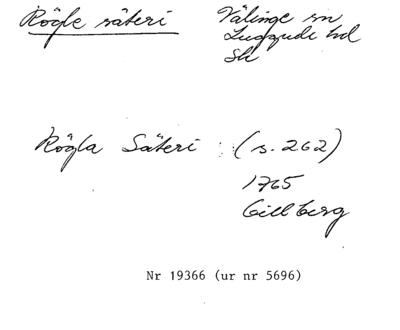 Rögle säteri
Välinge sn
Luggude hd
Sk
Rögla Säteri : (s. 262)
1765
Gillberg
Nr 19366 (ur nr 5696)